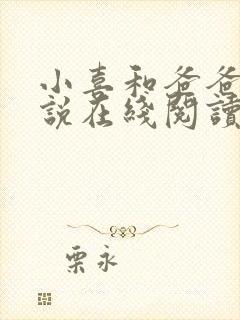 小喜和爸爸
說在綫閱讀
栗永